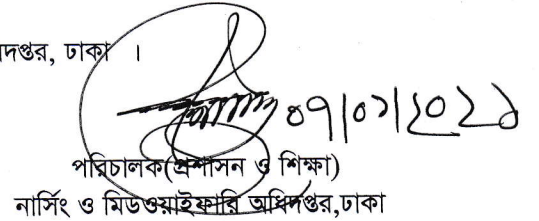 দপ্তর, ঢাকা ।
০৭|০১|২০২১
পরিচালক(প্রশাসন ও শিক্ষা)
নার্সিং ও মিডওয়াইফারি অধিদপ্তর,ঢাকা